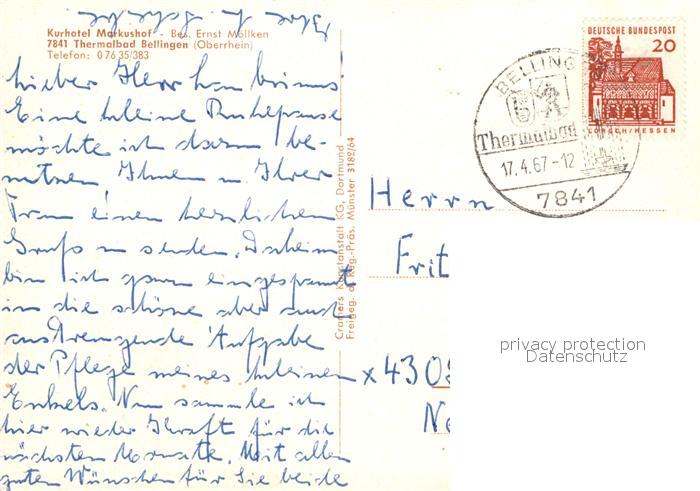 Kurhotel Markushof - Bes. Ernst Möllken
7841 Thermalbad Bellingen (Oberrhein)
Telefon: 0 76 35/383
lieber Herr
Eine kleine Ruhepause
möchte ich dazu be-
nutzen, Ihnen u. Ihrer
Frau einen herzlichen
Gruß zu senden. Daheim
bin ich ganz eingespannt
in die schöne aber auch
anstrengende Aufgabe
der Pflege meines kleinen
Enkels. Nun sammle ich
hier wieder Kraft für die
nächsten Monate. Mit allen
guten Wünschen für Sie beide
Cramers Kunstanstalt KG, Dortmund
Freigeg. d. Reg.-Präs. Münster 3182/64
BELLING
Thermalbad
17.4.67-12
7841
DEUTSCHE BUNDESPOST
20
LORSCH/HESSEN
Herrn
Frit
x 430
Ne
privacy protection
Datenschutz